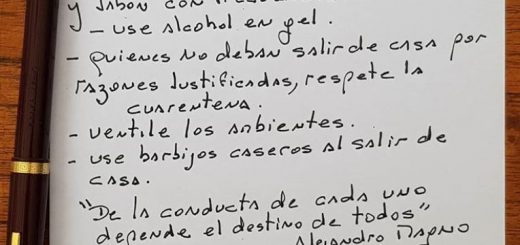 y Jabon con
- use alcohol en gel.
- quienes no deban salir de casa por
razones Justificadas, respete la
cuarentena.
- ventile los ambientes.
- use barbijos caseros al salir de
casa.
"De la conducta de cada uno
depende el destino de todos"
Alejandro Magno